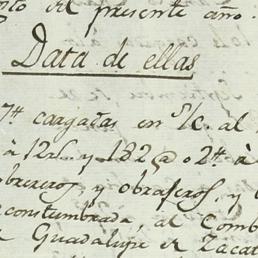 to del presente año.
Data de ellas
7# cargadas en S/C. al
à 12rs. y 182@ o 2# à
obrereros y obraseros, y
acostumbrada, al Comb
Guadalupe de Zacat